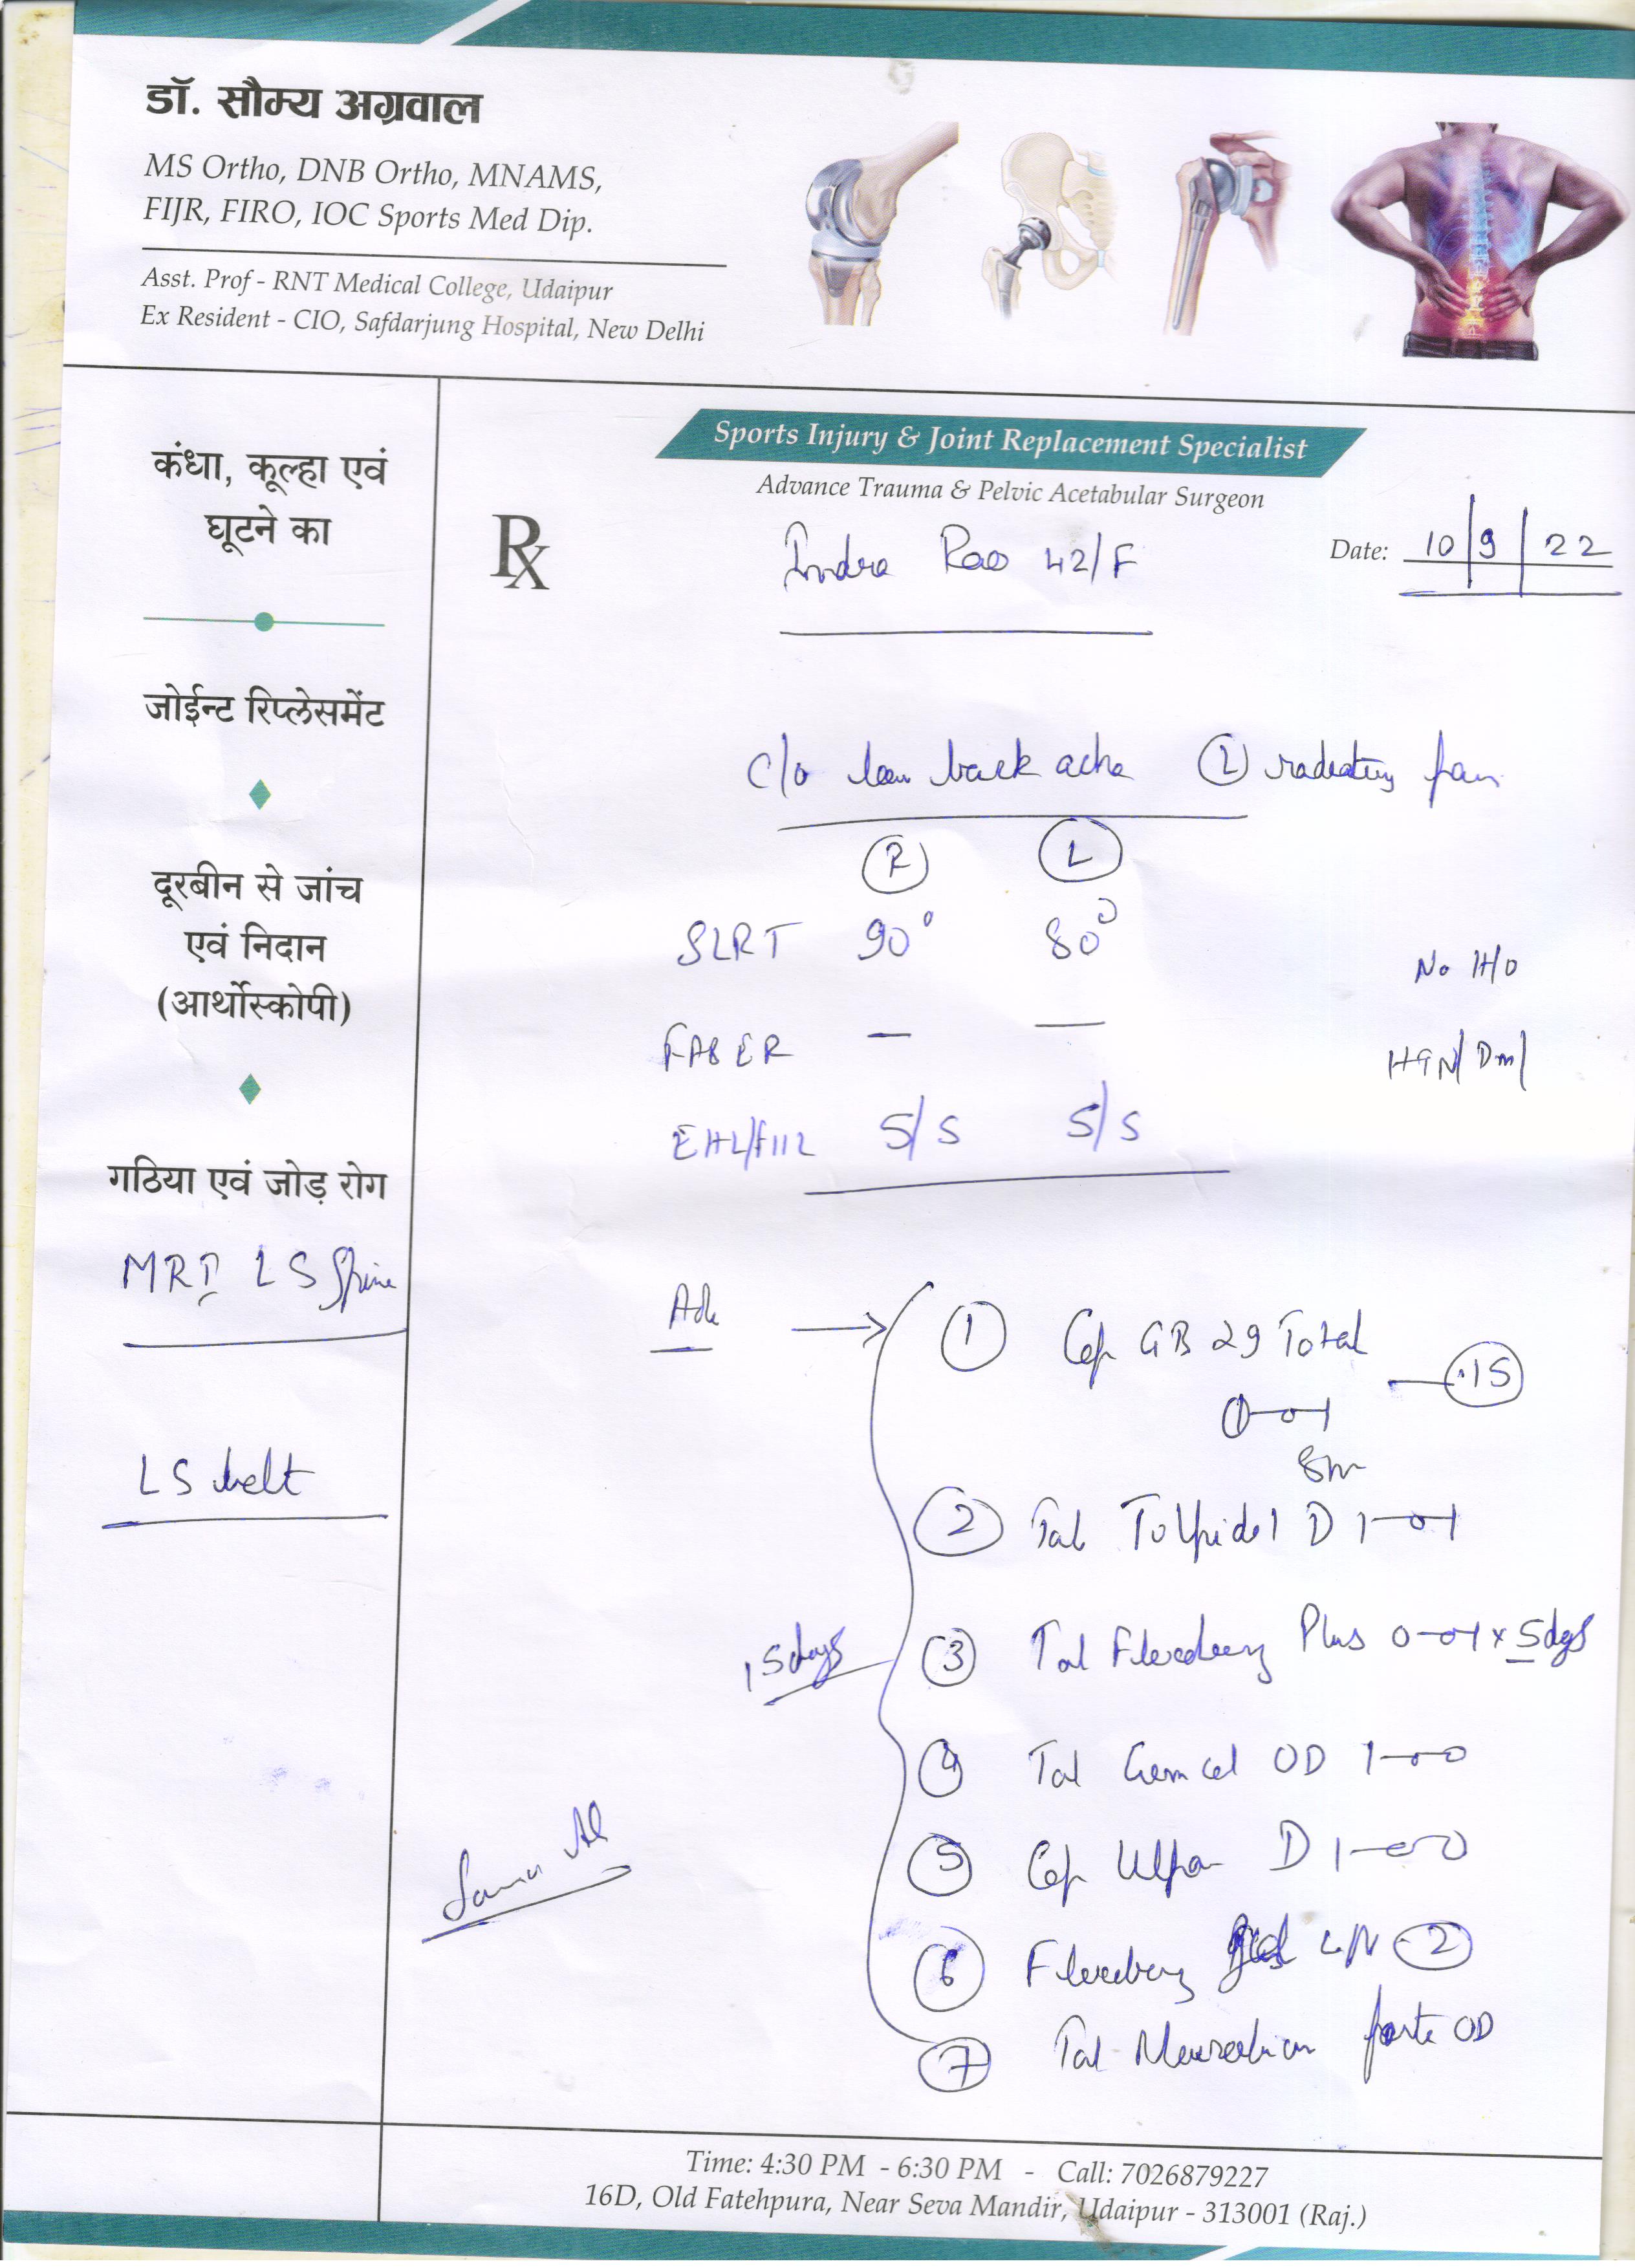 डॉ. सौम्य अग्रवाल
MS Ortho, DNB Ortho, MNAMS,
FIJR, FIRO, IOC Sports Med Dip.
Asst. Prof - RNT Medical College, Udaipur
Ex Resident - CIO, Safdarjung Hospital, New Delhi
कंधा, कूल्हा एवं
घूटने का
जोईन्ट रिप्लेसमेंट
दूरबीन से जांच
एवं निदान
(आर्थोस्कोपी)
गठिया एवं जोड़ रोग
MRI LS Spine
LS belt
Sports Injury & Joint Replacement Specialist
Advance Trauma & Pelvic Acetabular Surgeon
Rx
Indra Rao 42/F
Date: 10/9/22
C/o low back ache (L) radiating pain
(R) (L)
SLRT 90° 80°
No H/o
FABER — —
HTN/DM/
EHL/FHL 5/5 5/5
Adv → (1) Cap GB 29 Total — 15
1-0-1
(2) Tab D 1-0-1
15 days
(3) Tab Plus 0-0-1 x 5 days
(4) Tab Gemcal OD 1-0-0
(5) Cap D 1-0-0
(6) Gel L/A (2)
(7) Tab forte OD
Time: 4:30 PM - 6:30 PM - Call: 7026879227
16D, Old Fatehpura, Near Seva Mandir, Udaipur - 313001 (Raj.)